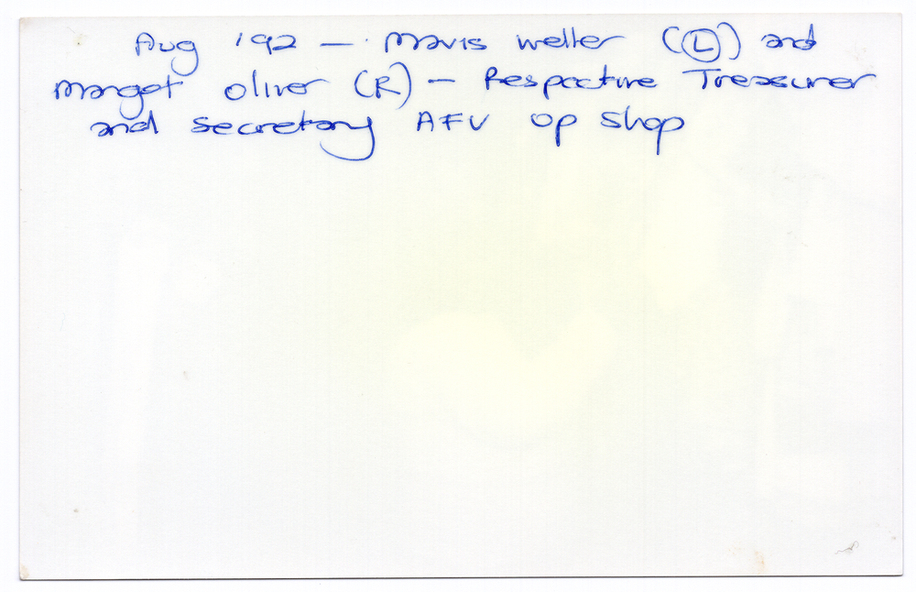 Aug '92 - Mavis Weller (L) and
Margot Oliver (R) - Respective Treasurer
and Secretary AFV Op Shop